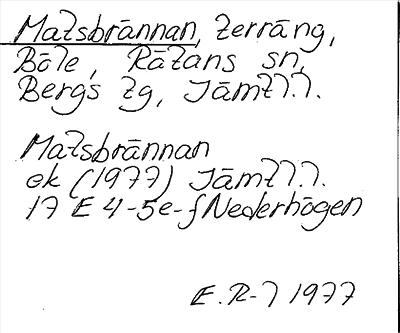 Matsbrännan, terräng,
Böle, Rätans sn,
Bergs tg, Jämtl.
Matsbrännan
ek (1977) Jämtl.
17 E 4-5e-f Nederhögen
E.R-l 1977